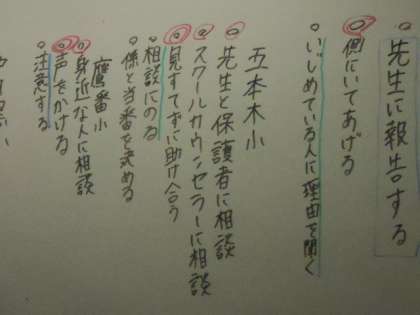 先生に報告する
側にいてあげる
いじめている人に理由を聞く
五本木小
先生と保護者に相談
スクールカウンセラーに相談
見すてずに助け合う
相談にのる
係と当番を決める
鷹番小
身近な人に相談
声をかける
注意する